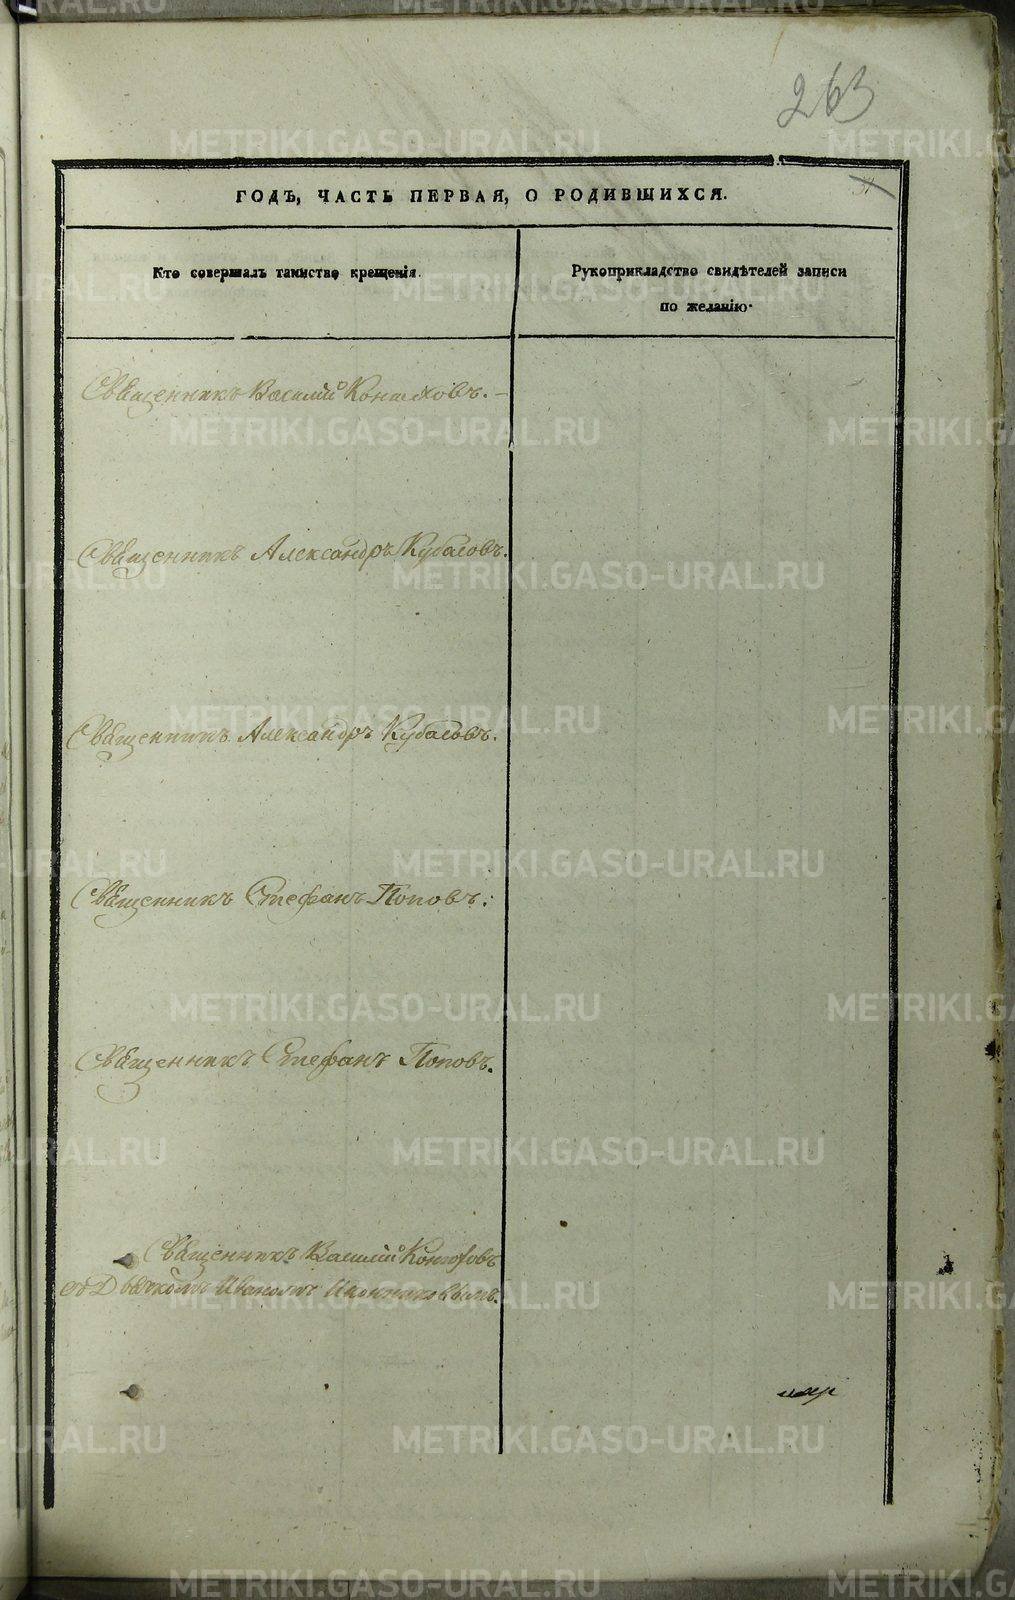 263
ГОДЪ, ЧАСТЬ ПЕРВАЯ, О РОДИВШИХСЯ.
Кто совершалъ таинство крещенія.
Рукоприкладство свидѣтелей записи
по желанію.
Священникъ Василій Конюховъ.
Священникъ Александръ Кубасовъ.
Священникъ Александръ Кубасовъ.
Священникъ Стефанъ Поповъ.
Священникъ Стефанъ Поповъ.
Священникъ Василій Конюховъ
съ Дьячкомъ Иваномъ Иконниковымъ.
METRIKI.GASO-URAL.RU